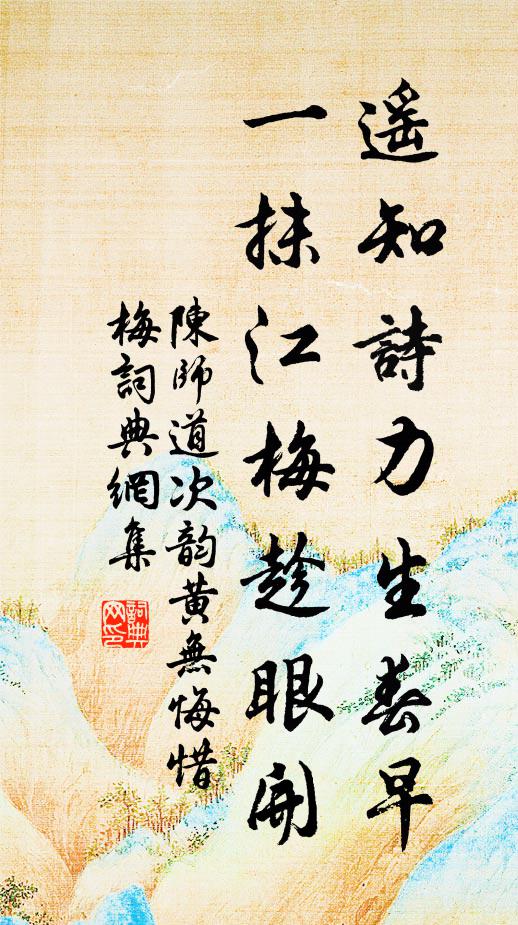 遥知詩力生春早
一抹江梅趁眼開
陳師道次韵黄無悔惜
梅詞典網集
詞典
网印